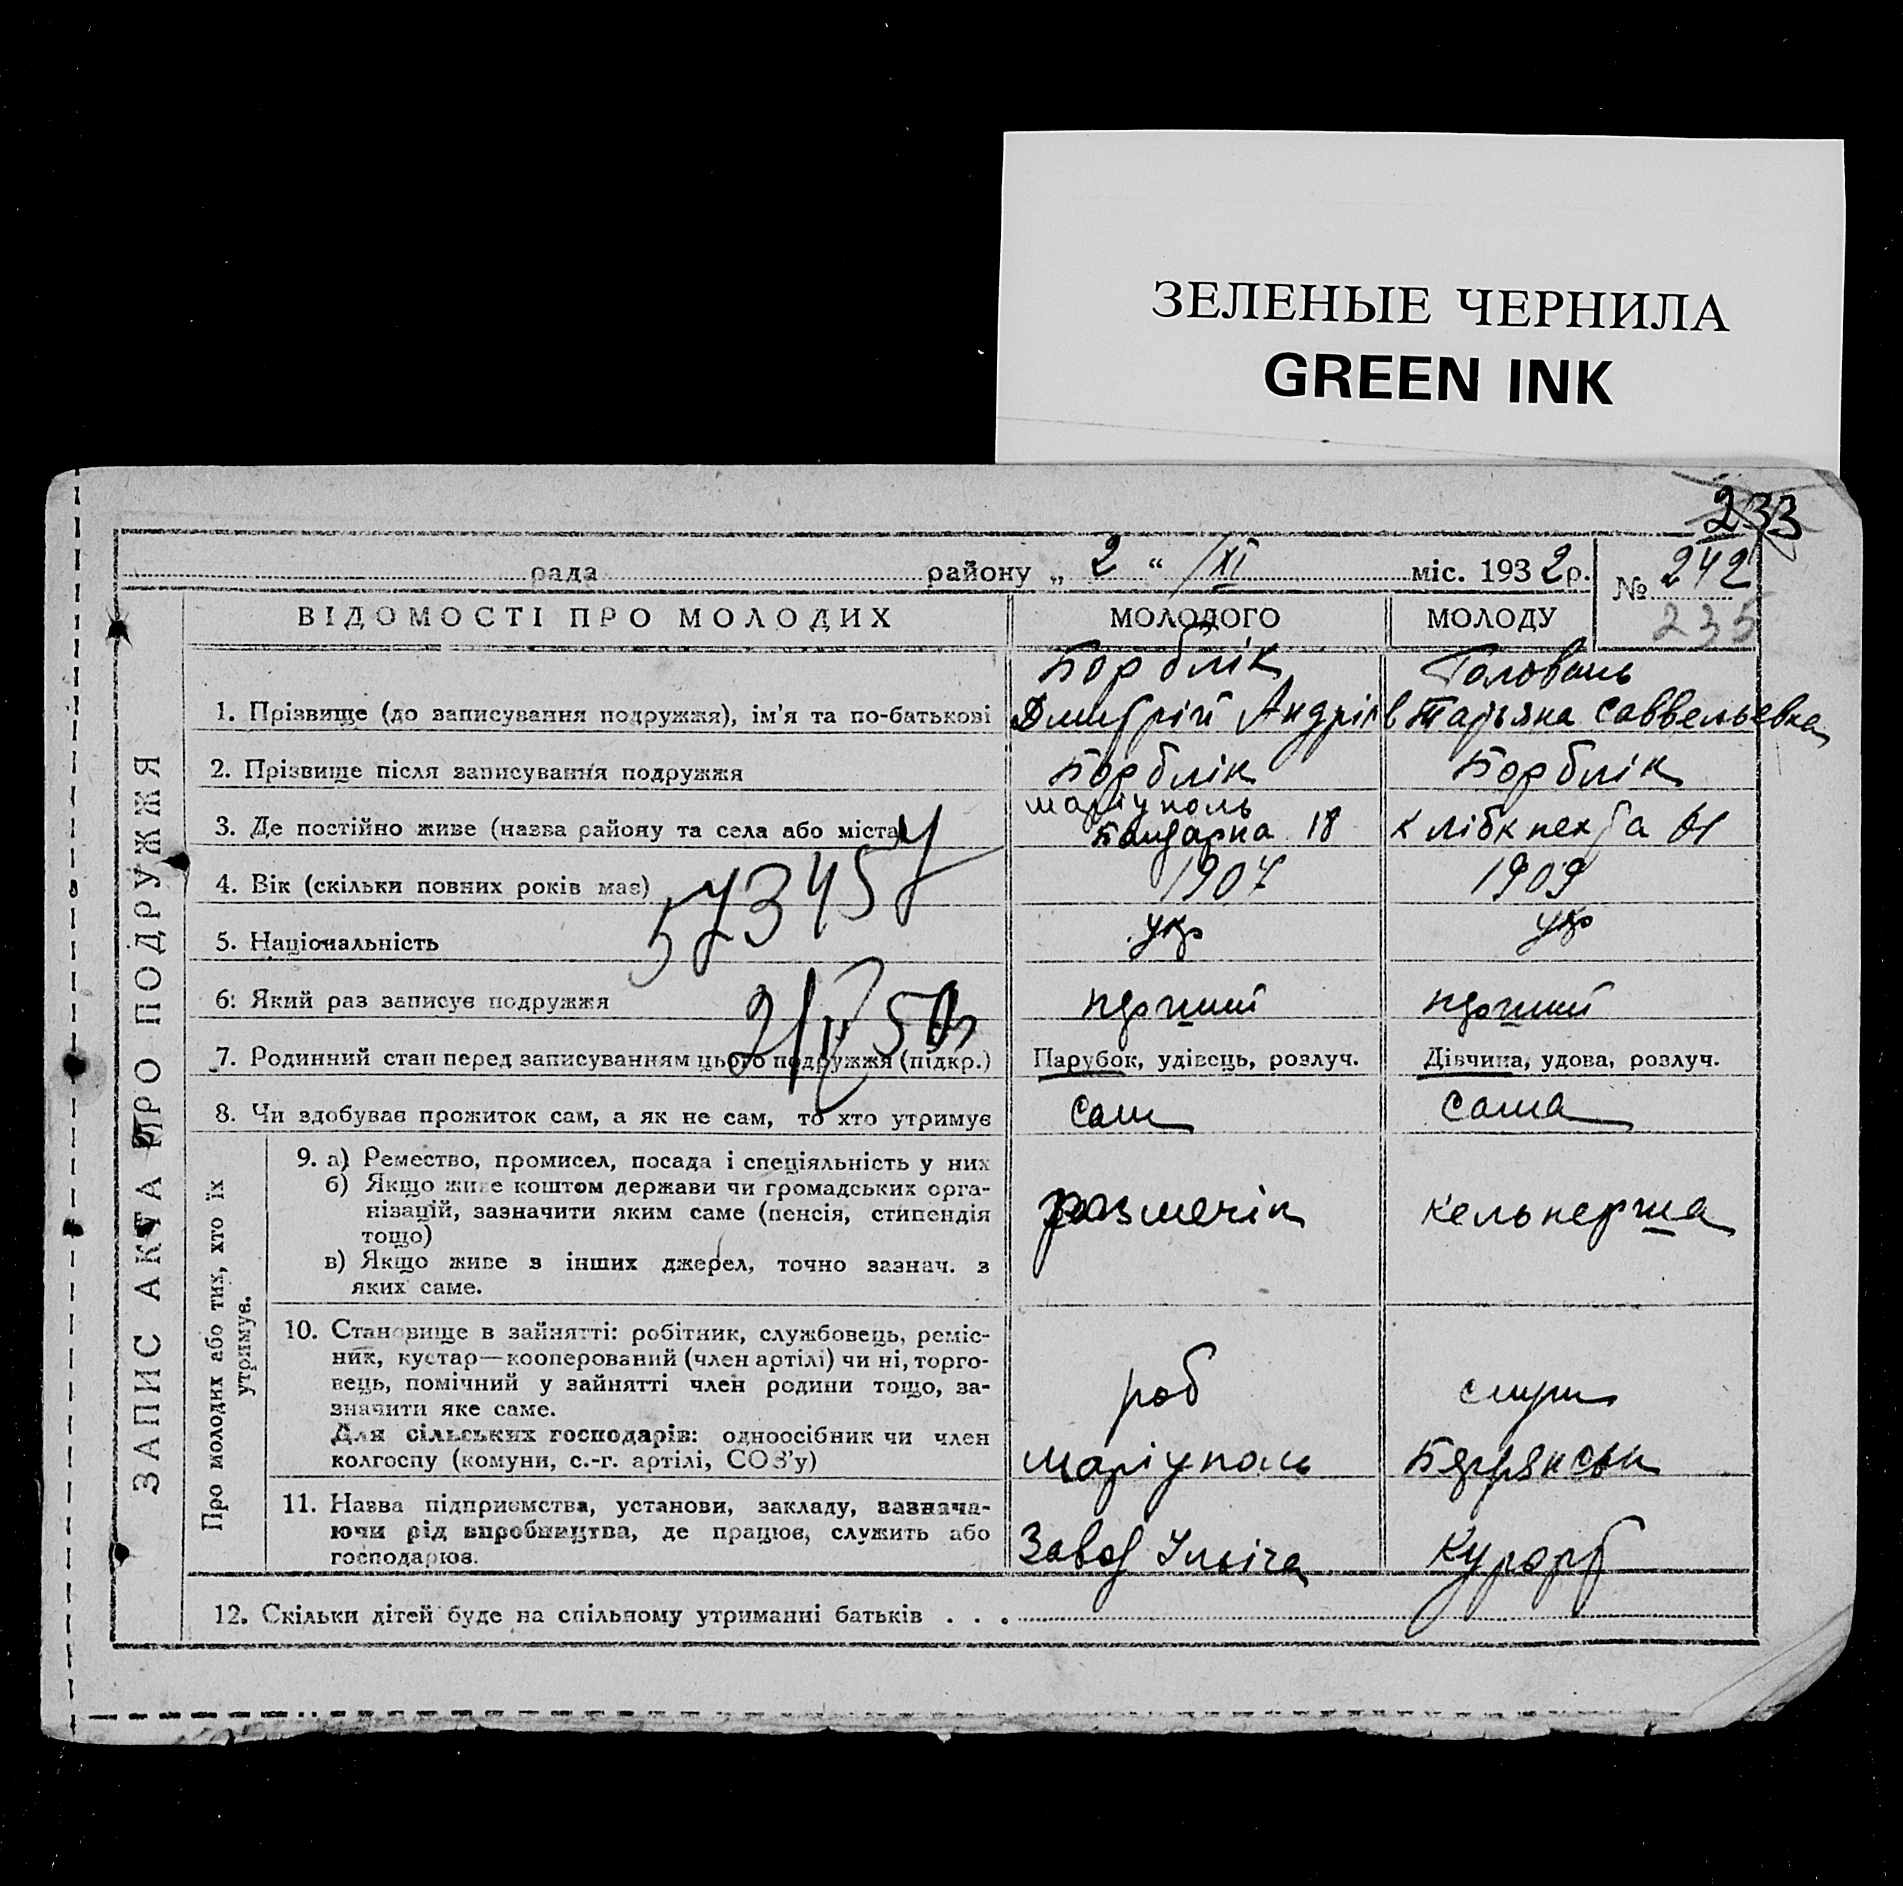 ЗЕЛЕНЫЕ ЧЕРНИЛА
GREEN INK
233
рада району „ 2 “ /XI міс. 1932 р. № 242
235
ВІДОМОСТІ ПРО МОЛОДИХ МОЛОДОГО МОЛОДУ
Борблік Головань
1. Прізвище (до записування подружжя), ім'я та по-батькові Дмитрій Андріїв Татьяна Саввельевна
2. Прізвище після записування подружжя Борблік Борблік
Маріуполь
3. Де постійно живе (назва району та села або міста) 18 К лібкнехта
4. Вік (скільки повних років має) 1907 1909
573457
5. Національність укр укр
6. Який раз записує подружжя перший перший
7. Родинний стан перед записуванням цього подружжя (підкр.) Парубок, удівець, розлуч. Дівчина, удова, розлуч.
8. Чи здобуває прожиток сам, а як не сам, то хто утримує сам сама
ЗАПИС АКТА ПРО ПОДРУЖЖЯ
Про молодих або тих, хто їх
утримує.
9. а) Ремество, промисел, посада і спеціяльність у них
б) Якщо живе коштом держави чи громадських орга-
нізацій, зазначити яким саме (пенсія, стипендія
тощо)
розмечік кельнерша
в) Якщо живе з інших джерел, точно зазнач. з
яких саме.
10. Становище в зайнятті: робітник, службовець, реміс-
ник, кустар—кооперований (член артілі) чи ні, торго-
вець, помічний у зайнятті член родини тощо, за-
значити яке саме.
роб
Для сільських господарів: одноосібник чи член
колгоспу (комуни, с.-г. артілі, СОЗ'у)
Маріуполь
11. Назва підприємства, установи, закладу, зазнача-
ючи рід виробництва, де працює, служить або
господарює.
Завод Ільіча Курорт
12. Скільки дітей буде на спільному утриманні батьків . . .